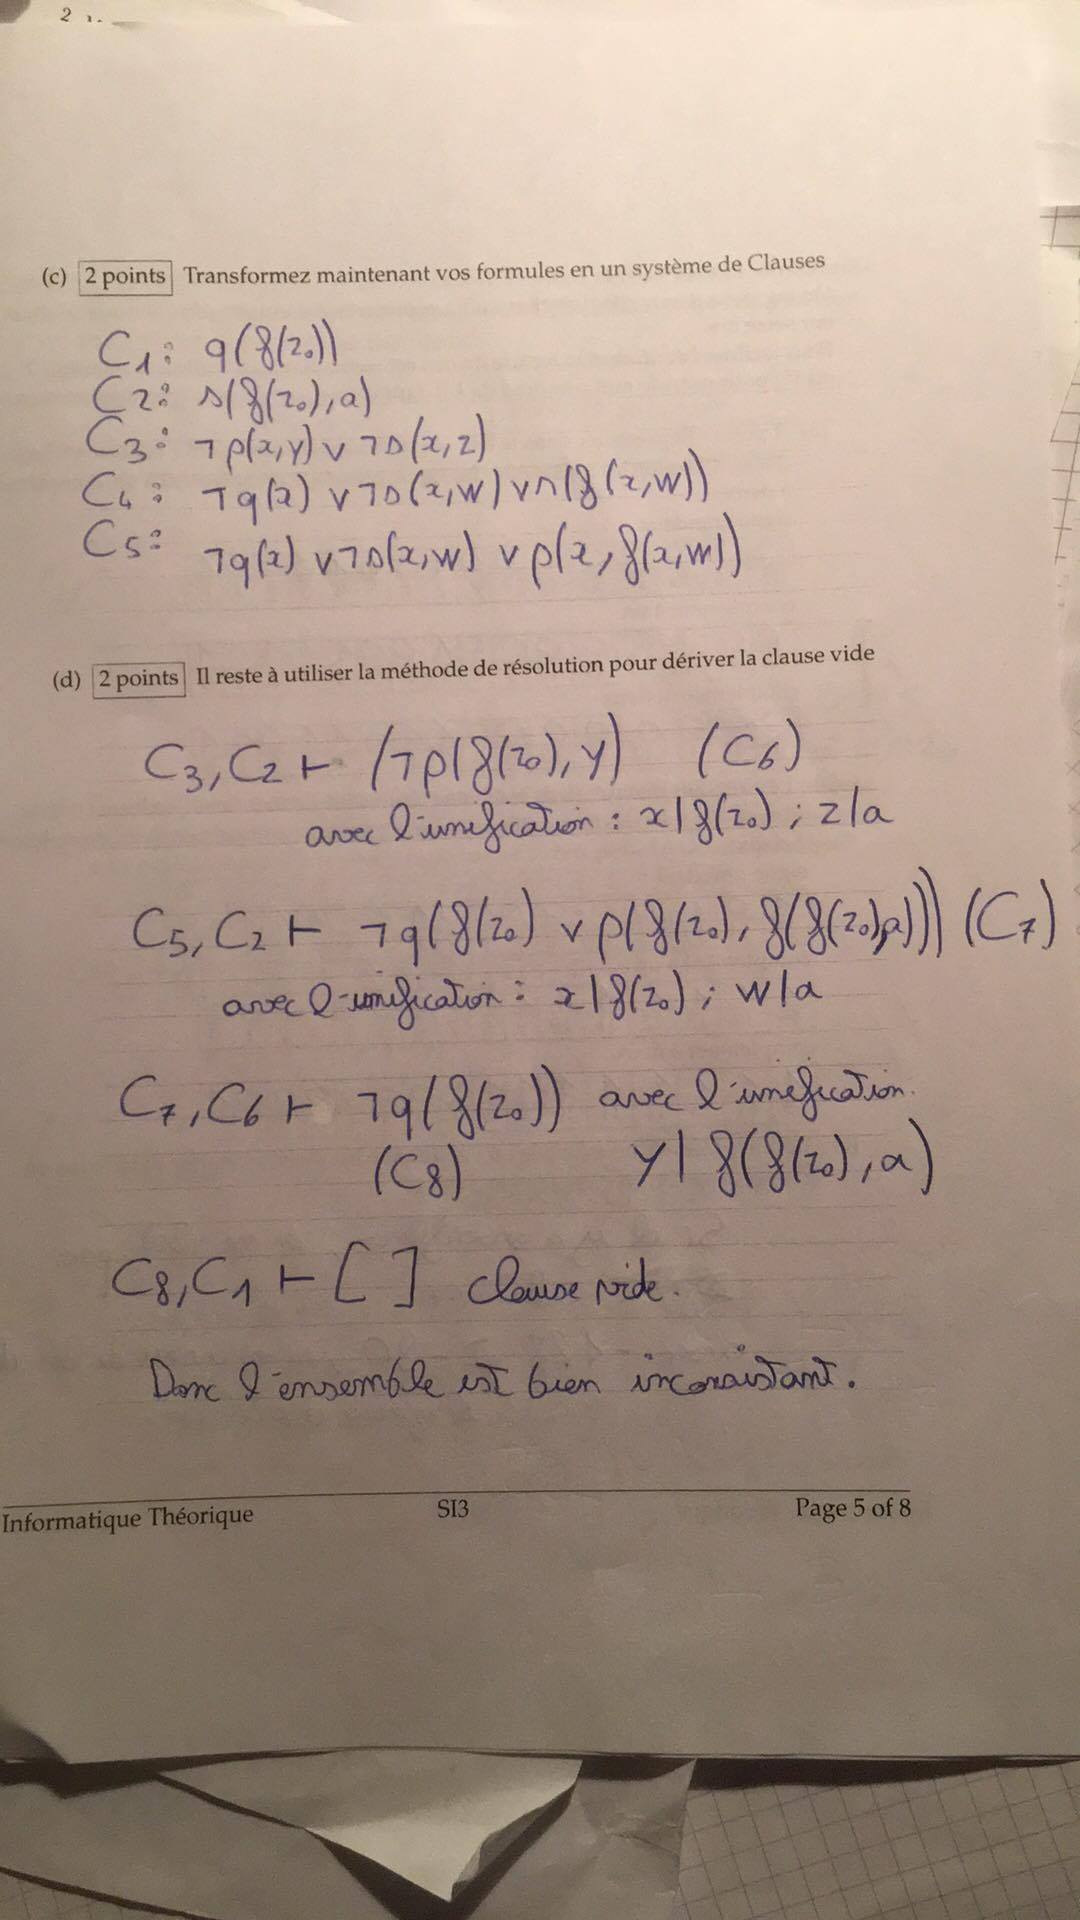 (c) 2 points Transformez maintenant vos formules en un système de Clauses
C1: q(f(z0))
C2: s(f(z0), a)
C3: ¬p(x,y) ∨ ¬s(x,z)
C4: ¬q(x) ∨ ¬s(x,w) ∨ r(f(x,w))
C5: ¬q(x) ∨ ¬s(x,w) ∨ p(x, f(x,w))
(d) 2 points Il reste à utiliser la méthode de résolution pour dériver la clause vide
C3, C2 ⊢ (¬p(f(z0), y) (C6)
avec l'unification : x|f(z0) ; z|a
C5, C2 ⊢ ¬q(f(z0) ∨ p(f(z0), f(f(z0),a))) (C7)
avec l'unification : x|f(z0) ; w|a
C7, C6 ⊢ ¬q(f(z0)) avec l'unification.
(C8) y| f(f(z0), a)
C8, C1 ⊢ [ ] clause vide.
Donc l'ensemble est bien inconsistant.
Informatique Théorique SI3 Page 5 of 8